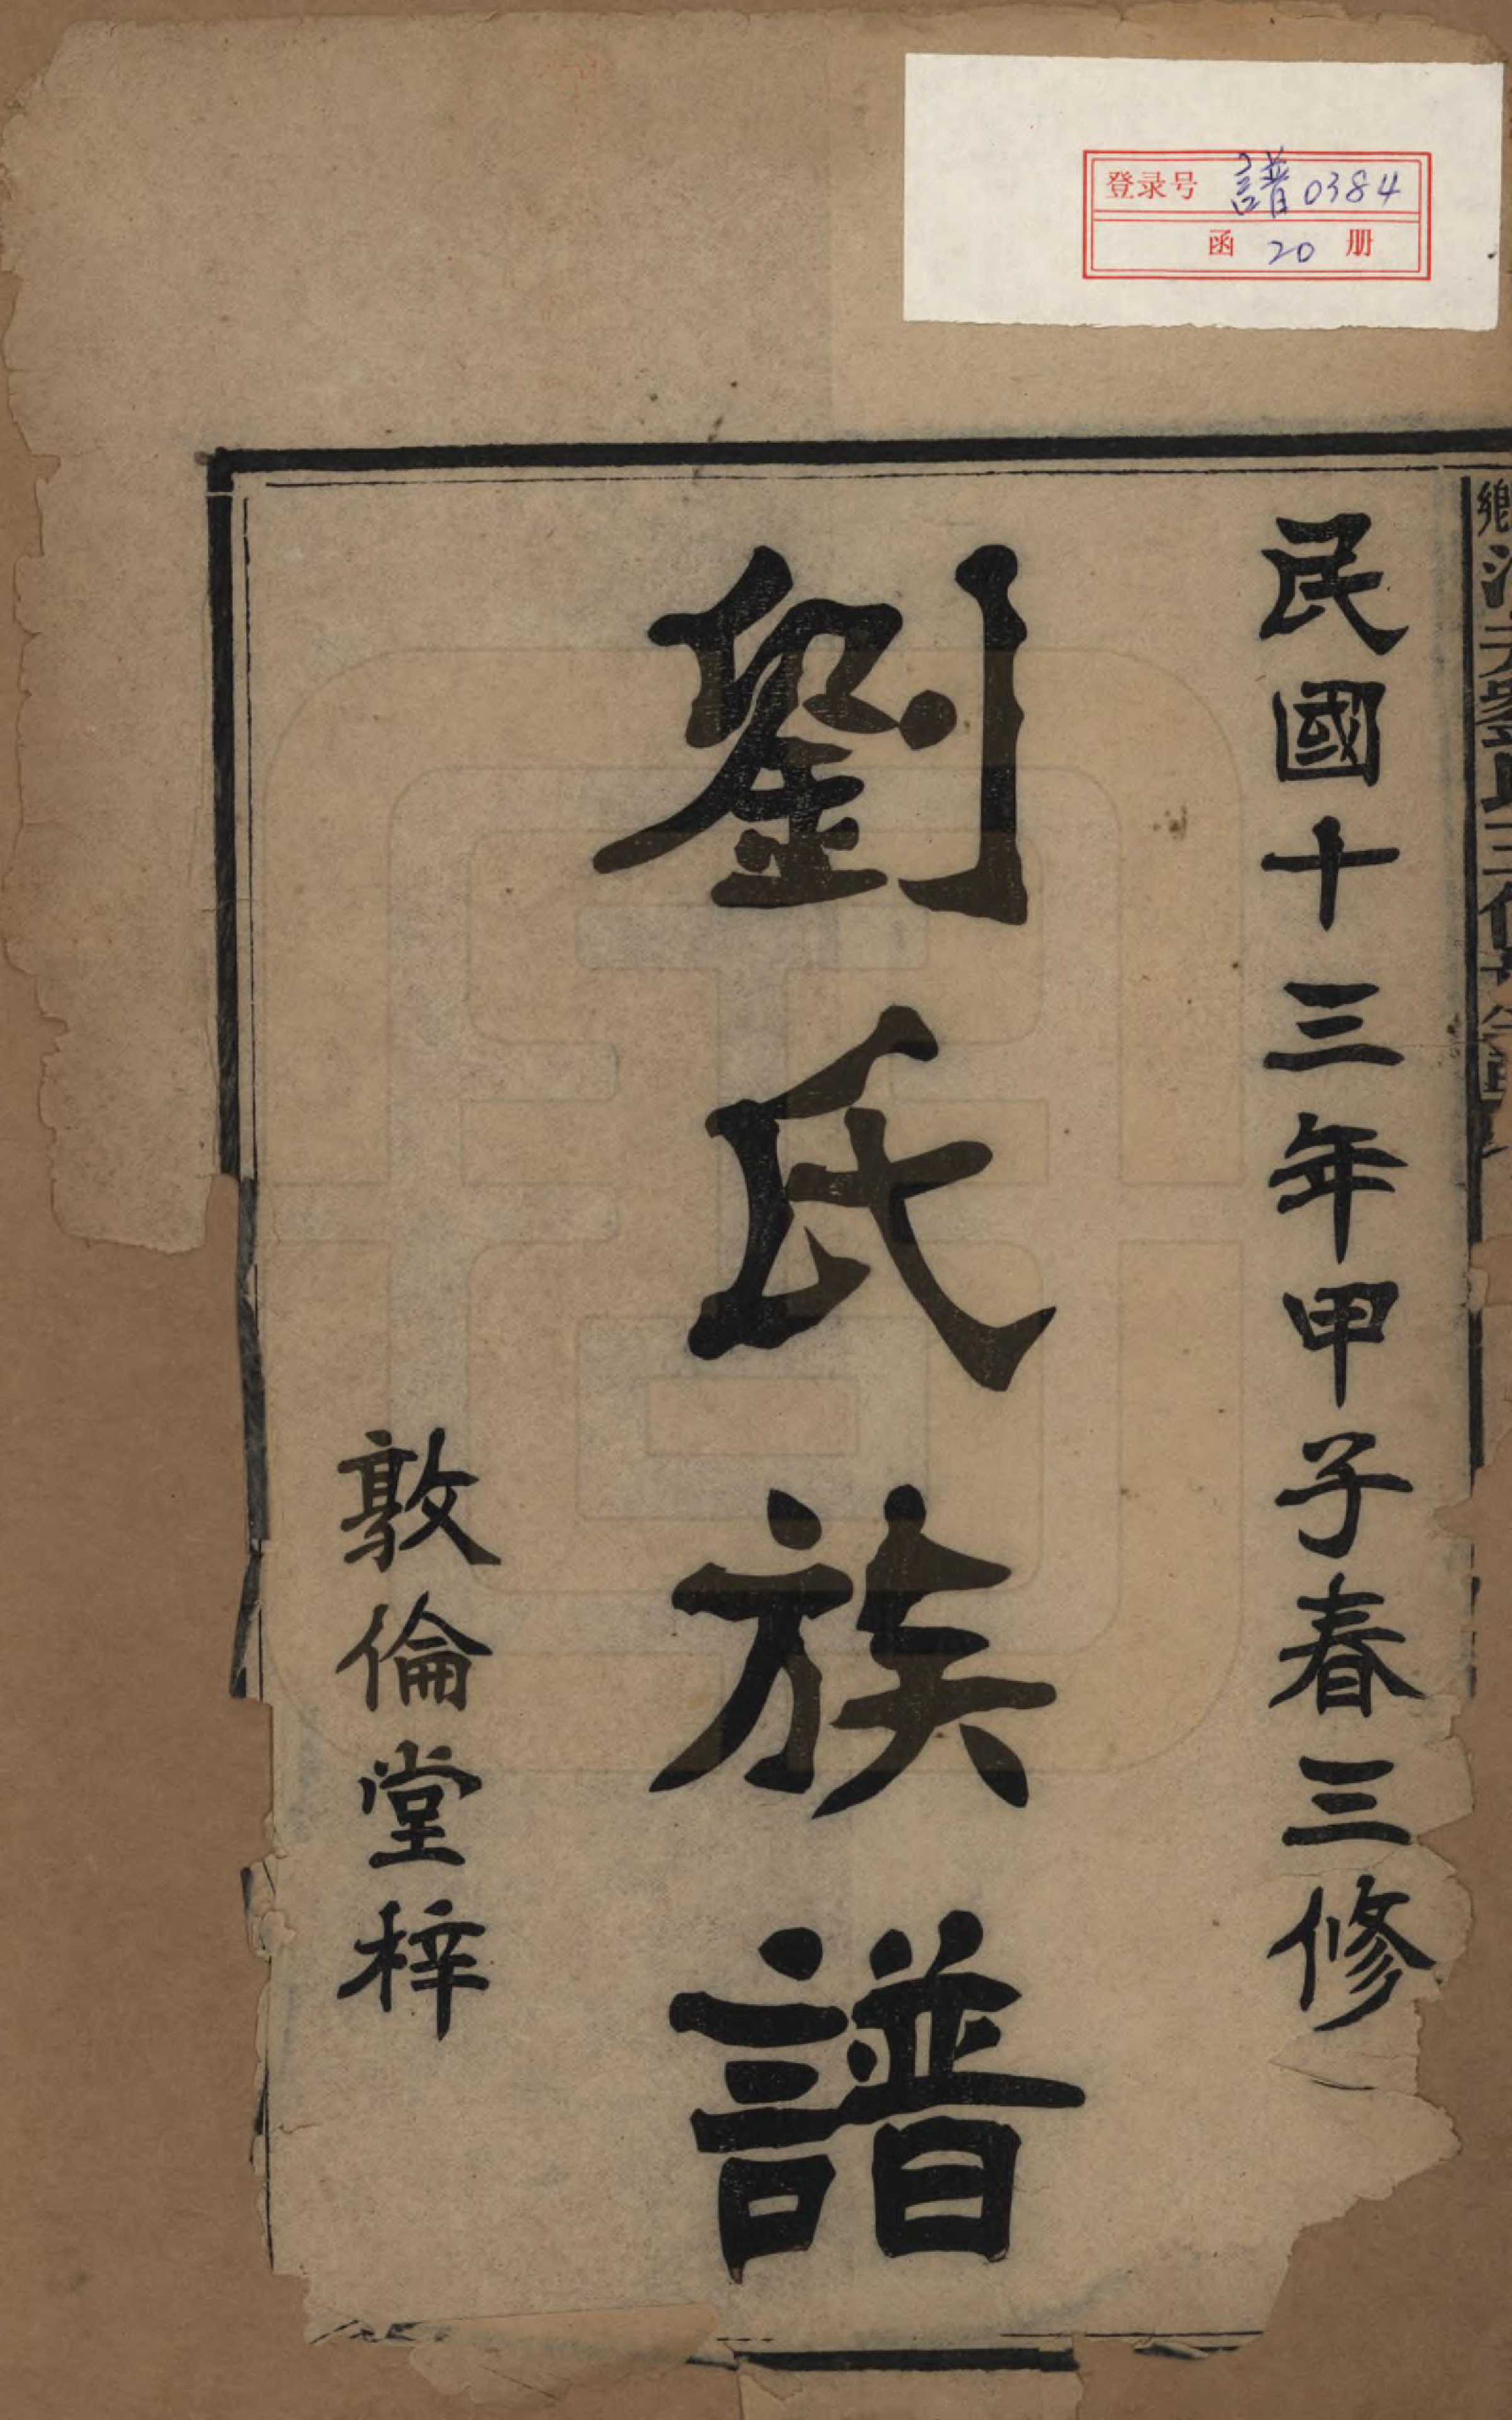 登录号 譜0384
函 20 册
民國十三年甲子春三修
劉氏族譜
敦倫堂梓